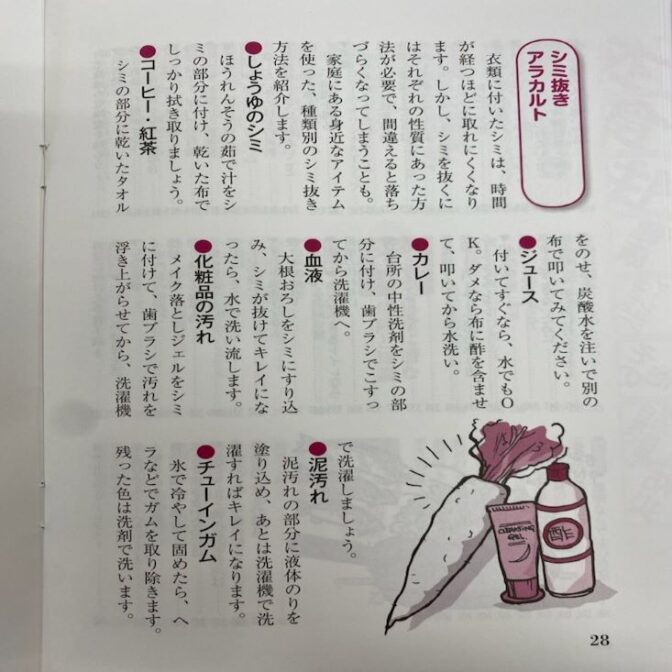 シミ抜き
アラカルト
衣類に付いたシミは、時間
が経つほどに取れにくくなり
ます。しかし、シミを抜くに
はそれぞれの性質にあった方
法が必要で、間違えると落ち
づらくなってしまうことも。
家庭にある身近なアイテム
を使った、種類別のシミ抜き
方法を紹介します。
●しょうゆのシミ
ほうれんそうの茹で汁をシ
ミの部分に付け、乾いた布で
しっかり拭き取りましょう。
●コーヒー・紅茶
シミの部分に乾いたタオル
をのせ、炭酸水を注いで別の
布で叩いてみてください。
●ジュース
付いてすぐなら、水でもO
K。ダメなら布に酢を含ませ
て、叩いてから水洗い。
●カレー
台所の中性洗剤をシミの部
分に付け、歯ブラシでこすっ
てから洗濯機へ。
●血液
大根おろしをシミにすり込
み、シミが抜けてキレイにな
ったら、水で洗い流します。
●化粧品の汚れ
メイク落としジェルをシミ
に付けて、歯ブラシで汚れを
浮き上がらせてから、洗濯機
で洗濯しましょう。
●泥汚れ
泥汚れの部分に液体のりを
塗り込め、あとは洗濯機で洗
濯すればキレイになります。
●チューインガム
氷で冷やして固めたら、ヘ
ラなどでガムを取り除きます。
残った色は洗剤で洗います。
CLEANSING
GEL
酢
28